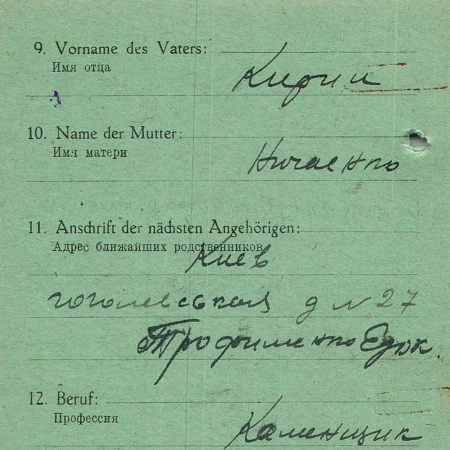 9. Vorname des Vaters:
Имя отца
Кирил
10. Name der Mutter:
Имя матери
Ничаенко
11. Anschrift der nächsten Angehörigen:
Адрес ближайших родственников
Киев
гоголевськая д № 27
Трофименко Едок
12. Beruf:
Профессия
Каменщик